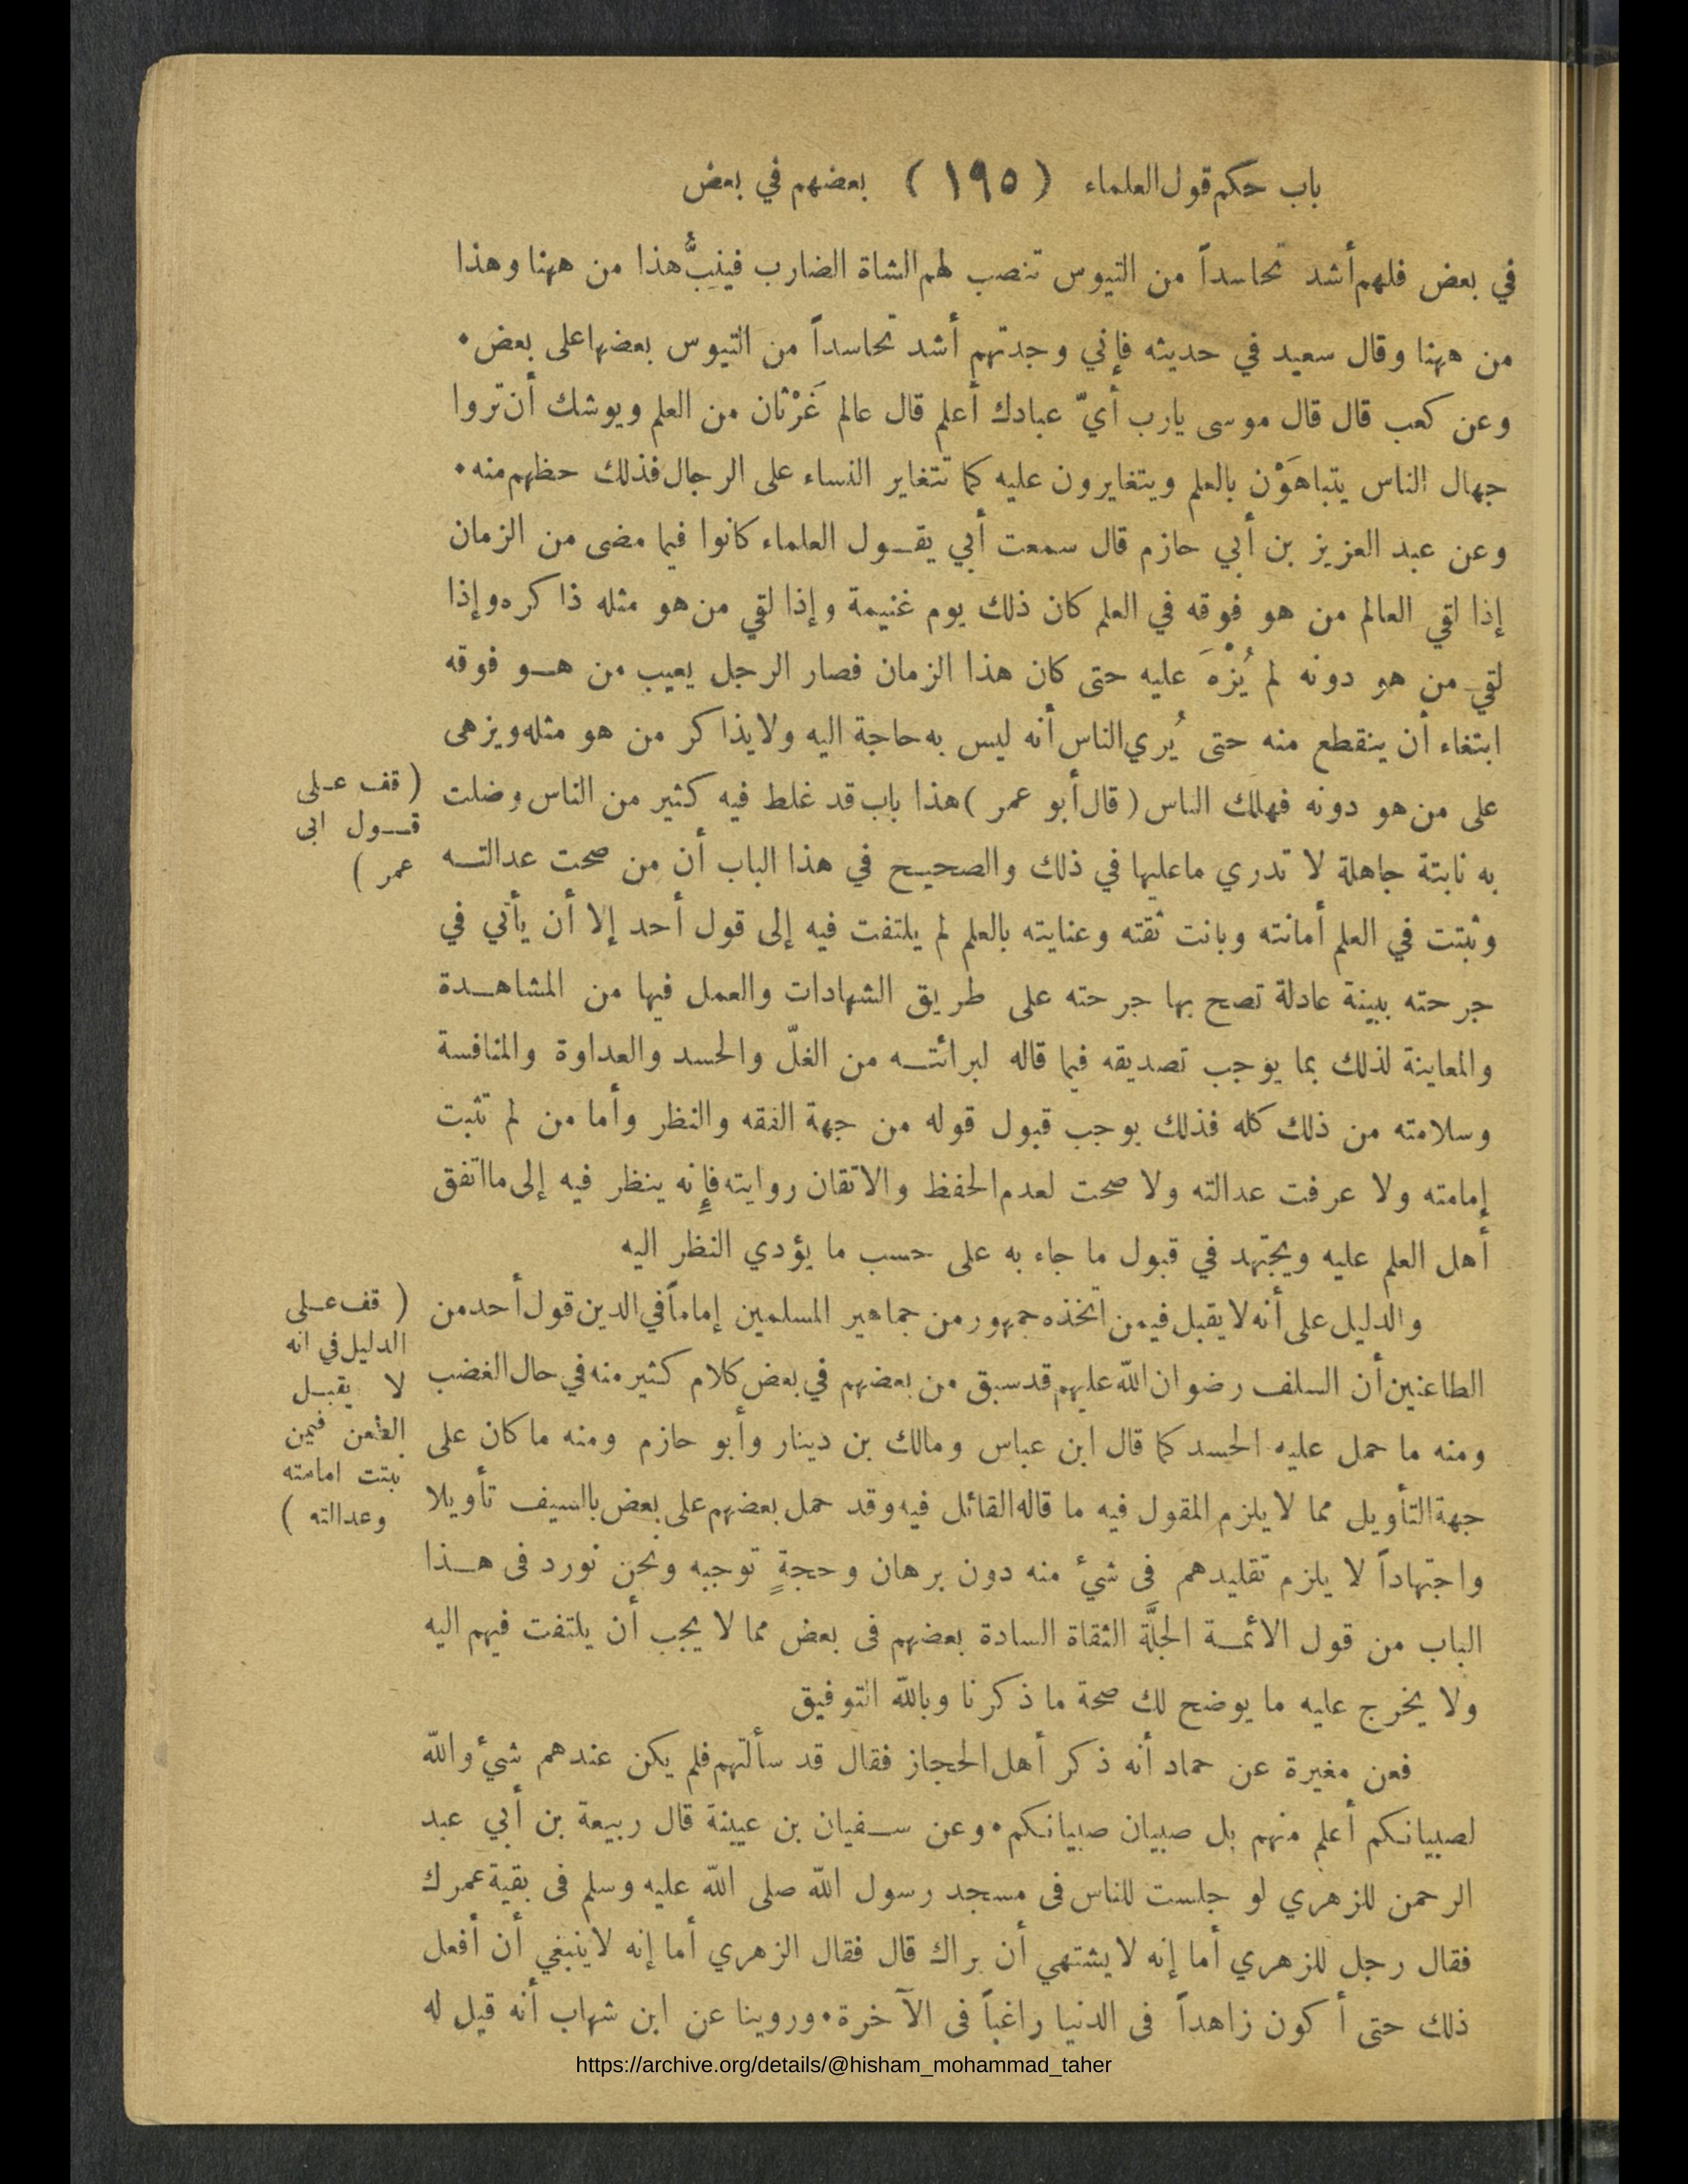 باب حكم قول العلماء ( ١٩٥ ) بعضهم في بعض
في بعض فلهم أشد تحاسداً من التيوس تنصب لهم الشاة الضارب فينبُّ هذا من ههنا وهذا
من ههنا وقال سعيد في حديثه فإني وجدتهم أشد تحاسداً من التيوس بعضها على بعض .
وعن كعب قال قال موسى يارب أيّ عبادك أعلم قال عالم غَرْثان من العلم ويوشك أن تروا
جهال الناس يتباهَوْن بالعلم ويتغايرون عليه كما تتغاير النساء على الرجال فذلك حظهم منه .
وعن عبد العزيز بن أبي حازم قال سمعت أبي يقـول العلماء كانوا فيما مضى من الزمان
إذا لقي العالم من هو فوقه في العلم كان ذلك يوم غنيمة وإذا لقي من هو مثله ذاكره وإذا
لقي من هو دونه لم يُزْهَ عليه حتى كان هذا الزمان فصار الرجل يعيب من هـو فوقه
ابتغاء أن ينقطع منه حتى يُري الناس أنه ليس به حاجة اليه ولا يذاكر من هو مثله ويزهى
على من هو دونه فهلك الناس ( قال أبو عمر ) هذا باب قد غلط فيه كثير من الناس وضلت
( قف عـلى
قـول ابى
عمر )
به نابتة جاهلة لا تدري ماعليها في ذلك والصحيـح في هذا الباب أن من صحت عدالتـه
وثبتت في العلم أمانته وبانت ثقته وعنايته بالعلم لم يلتفت فيه إلى قول أحد إلا أن يأتي في
جرحته ببينة عادلة تصح بها جرحته على طريق الشهادات والعمل فيها من المشاهـدة
والمعاينة لذلك بما يوجب تصديقه فيما قاله لبرائتـه من الغلّ والحسد والعداوة والمنافسة
وسلامته من ذلك كله فذلك يوجب قبول قوله من جهة الفقه والنظر وأما من لم تثبت
إمامته ولا عرفت عدالته ولا صحت لعدم الحفظ والاتقان روايته فإنه ينظر فيه إلى مااتفق
أهل العلم عليه ويجتهد في قبول ما جاء به على حسب ما يؤدي النظر اليه
والدليل على أنه لا يقبل فيمن اتخذه جمهور من جماهير المسلمين إماماً في الدين قول أحد من
( قف عـلى
الدليل في انه
لا يقبـل
الطعن فيمن
ثبتت امامته
وعدالته )
الطاعنين أن السلف رضوان الله عليهم قد سبق من بعضهم في بعض كلام كثير منه في حال الغضب
ومنه ما حمل عليه الحسد كما قال ابن عباس ومالك بن دينار وأبو حازم ومنه ما كان على
جهة التأويل مما لا يلزم المقول فيه ما قاله القائل فيه وقد حمل بعضهم على بعض بالسيف تأويلا
واجتهاداً لا يلزم تقليدهم فى شيءٔ منه دون برهان وحجةٍ توجبه ونحن نورد فى هـذا
الباب من قول الائمـة الجلَّة الثقاة السادة بعضهم فى بعض مما لا يجب أن يلتفت فيهم اليه
ولا يخرج عليه ما يوضح لك صحة ما ذكرنا وبالله التوفيق
فعن مغيرة عن حماد أنه ذكر أهل الحجاز فقال قد سألتهم فلم يكن عندهم شيءٔ والله
لصبيانكم أعلم منهم بل صبيان صبيانكم . وعن سـفيان بن عيينة قال ربيعة بن أبي عبد
الرحمن للزهري لو جلست للناس فى مسجد رسول الله صلى الله عليه وسلم فى بقية عمرك
فقال رجل للزهري أما إنه لا يشتهي أن يراك قال فقال الزهري أما إنه لا ينبغي أن أفعل
ذلك حتى أكون زاهداً فى الدنيا راغباً فى الآخرة . وروينا عن ابن شهاب أنه قيل له
https://archive.org/details/@hisham_mohammad_taher